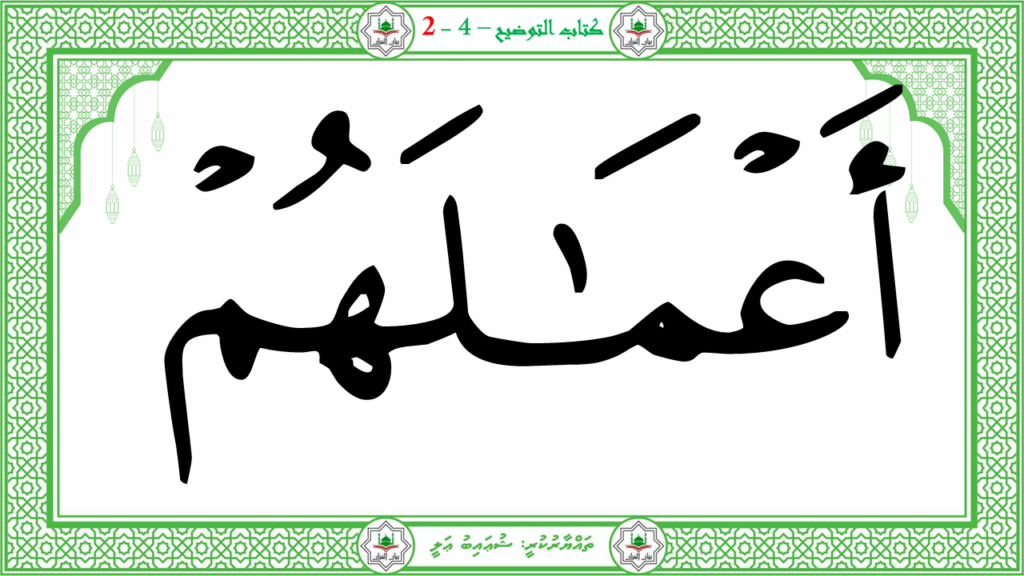 كتاب التوضيح – 4 - 2
أَعْمَـٰلَهُمْ
ތައްޔާރުކުރީ: ޝުޢައިބު ޢަލީ